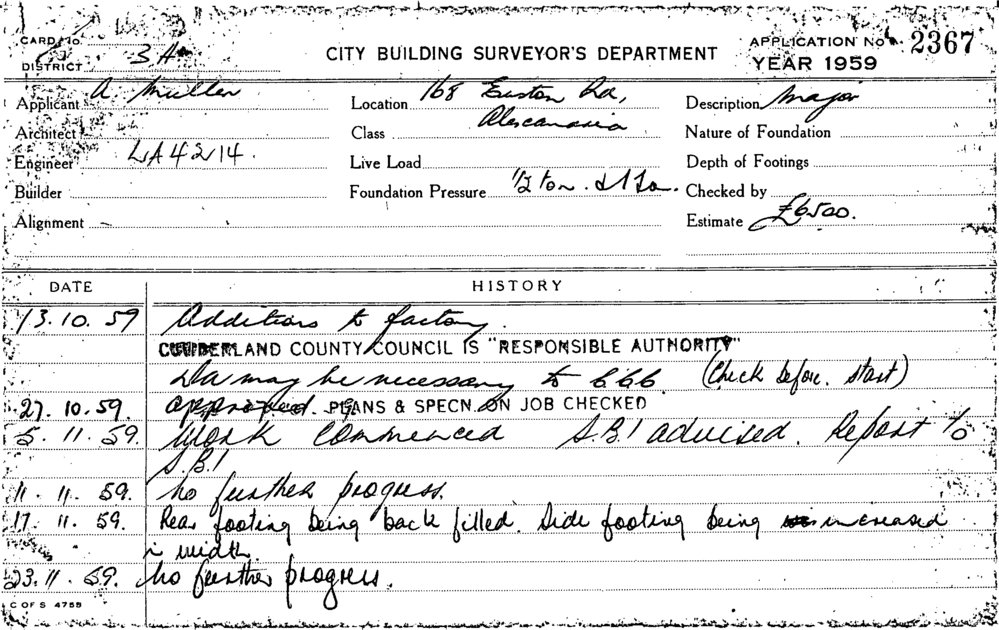 CARD No.
DISTRICT 3A
CITY BUILDING SURVEYOR'S DEPARTMENT
APPLICATION No 2367
YEAR 1959
Applicant A. Muller
Location 168 Euston Rd,
Alexandria
Description Major
Architect
Class
Nature of Foundation
Engineer LA4214.
Live Load
Depth of Footings
Builder
Foundation Pressure 1/2 ton.
Checked by
Alignment
Estimate £6500.
DATE
HISTORY
13.10.59 Additions to factory.
CUMBERLAND COUNTY COUNCIL IS "RESPONSIBLE AUTHORITY"
may be necessary to (Check before start)
27.10.59. approved. PLANS & SPECN. ON JOB CHECKED
5.11.59. Work commenced S.B.I advised. Report to
S.B.I
11.11.59. No further progress.
17.11.59. Rear footing being back filled. Side footing being increased
in width.
23.11.59. No further progress.
C OF S 4755